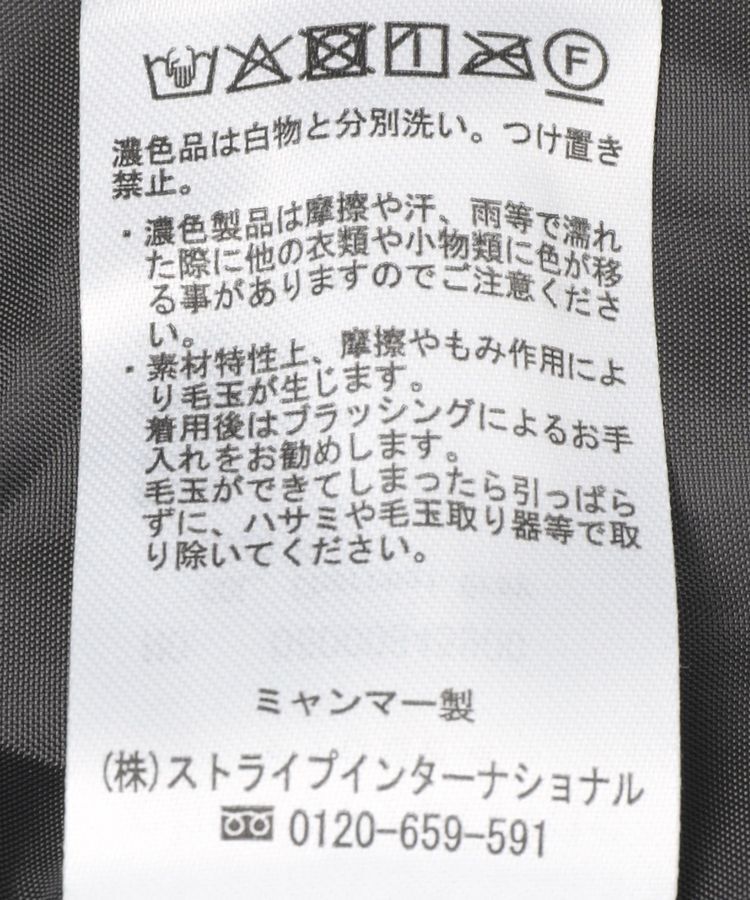 F
濃色品は白物と分別洗い。つけ置き
禁止。
・濃色製品は摩擦や汗、雨等で濡れ
た際に他の衣類や小物類に色が移
る事がありますのでご注意くださ
い。
・素材特性上、摩擦やもみ作用によ
り毛玉が生じます。
着用後はブラッシングによるお手
入れをお勧めします。
毛玉ができてしまったら引っぱら
ずに、ハサミや毛玉取り器等で取
り除いてください。
ミャンマー製
(株)ストライプインターナショナル
0120-659-591